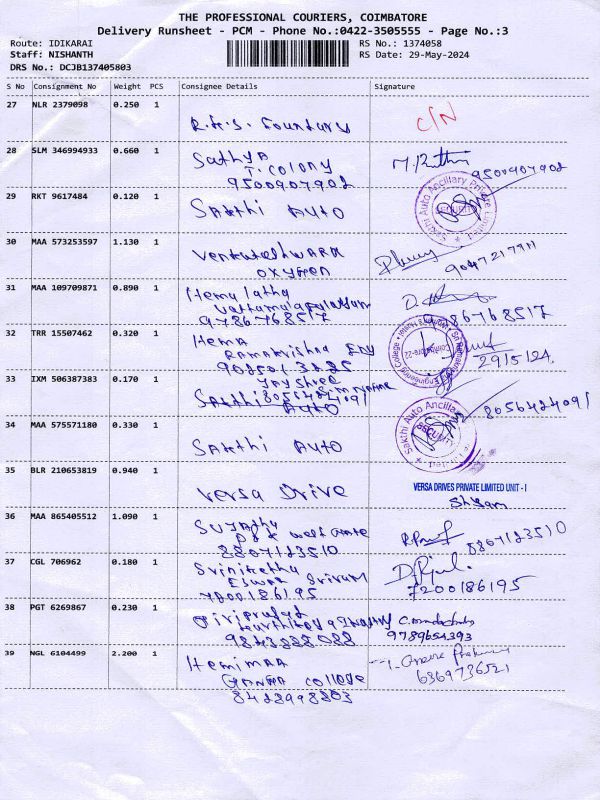 THE PROFESSIONAL COURIERS, COIMBATORE
Delivery Runsheet - PCM - Phone No.:0422-3505555 - Page No.:3
Route: IDIKARAI
RS No.: 1374058
Staff: NISHANTH
RS Date: 29-May-2024
DRS No.: DCJB137405803
S No Consignment No Weight PCS Consignee Details Signature
27 NLR 2379098 0.250 1
R.K.S. Foundary
C/N
28 SLM 346994933 0.660 1
Sathya
T. Colony
9500907902
9500907902
29 RKT 9617484 0.120 1
Sakthi Auto
Sakthi Auto Ancillary Private Limited
SECURITY
30 MAA 573253597 1.130 1
Venkateshwara
Oxygen
9047217911
31 MAA 109709871 0.890 1
Hemalatha
9786768517
9786768517
32 TRR 15507462 0.320 1
Hema
Ramakrishna
Coimbatore-22
29/5/24.
33 IXM 506387383 0.170 1
Jayshree
8056424091
Sakthi Auto
8056424091
34 MAA 575571180 0.330 1
Sakthi Auto
Sakthi Auto Ancillary
SECURITY
35 BLR 210653819 0.940 1
Versa Drive
VERSA DRIVES PRIVATE LIMITED UNIT - I
36 MAA 865405512 1.090 1
Sujatha
8807123510
8807123510
37 CGL 706962 0.180 1
Sriniketha
Eswar Sriram
7200186195
7200186195
38 PGT 6269867 0.230 1
Giriprasad
9789654393
39 NGL 6104499 2.200 1
Hemimaa
Ganga College
8428998803
6369736521